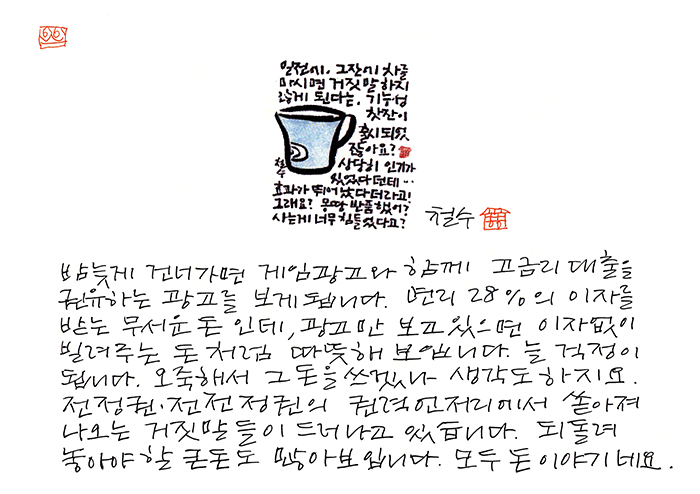 일전에, 그잔에 차를
마시면 거짓말 하지
않게 된다는, 기능성
찻잔이
출시되었
잖아요?
상당히 인기가
있었다던데...
철수
효과가 뛰어났다더라고!
그래요? 몽땅 반품했어?
사는게 너무 힘들었다고?
철수
밤늦게 건너가면 게임광고와 함께 고금리 대출을
권유하는 광고를 보게됩니다. 연리 28%의 이자를
받는 무서운 돈 인데, 광고만 보고있으면 이자없이
빌려주는 돈 처럼 따뜻해 보입니다. 늘 걱정이
됩니다. 오죽해서 그 돈을 쓰겠나 생각도 하지요.
전정권·전전정권의 권력언저리에서 쏟아져
나오는 거짓말들이 드러나고 있습니다. 되돌려
놓아야 할 큰돈도 많아보입니다. 모두 돈 이야기네요.